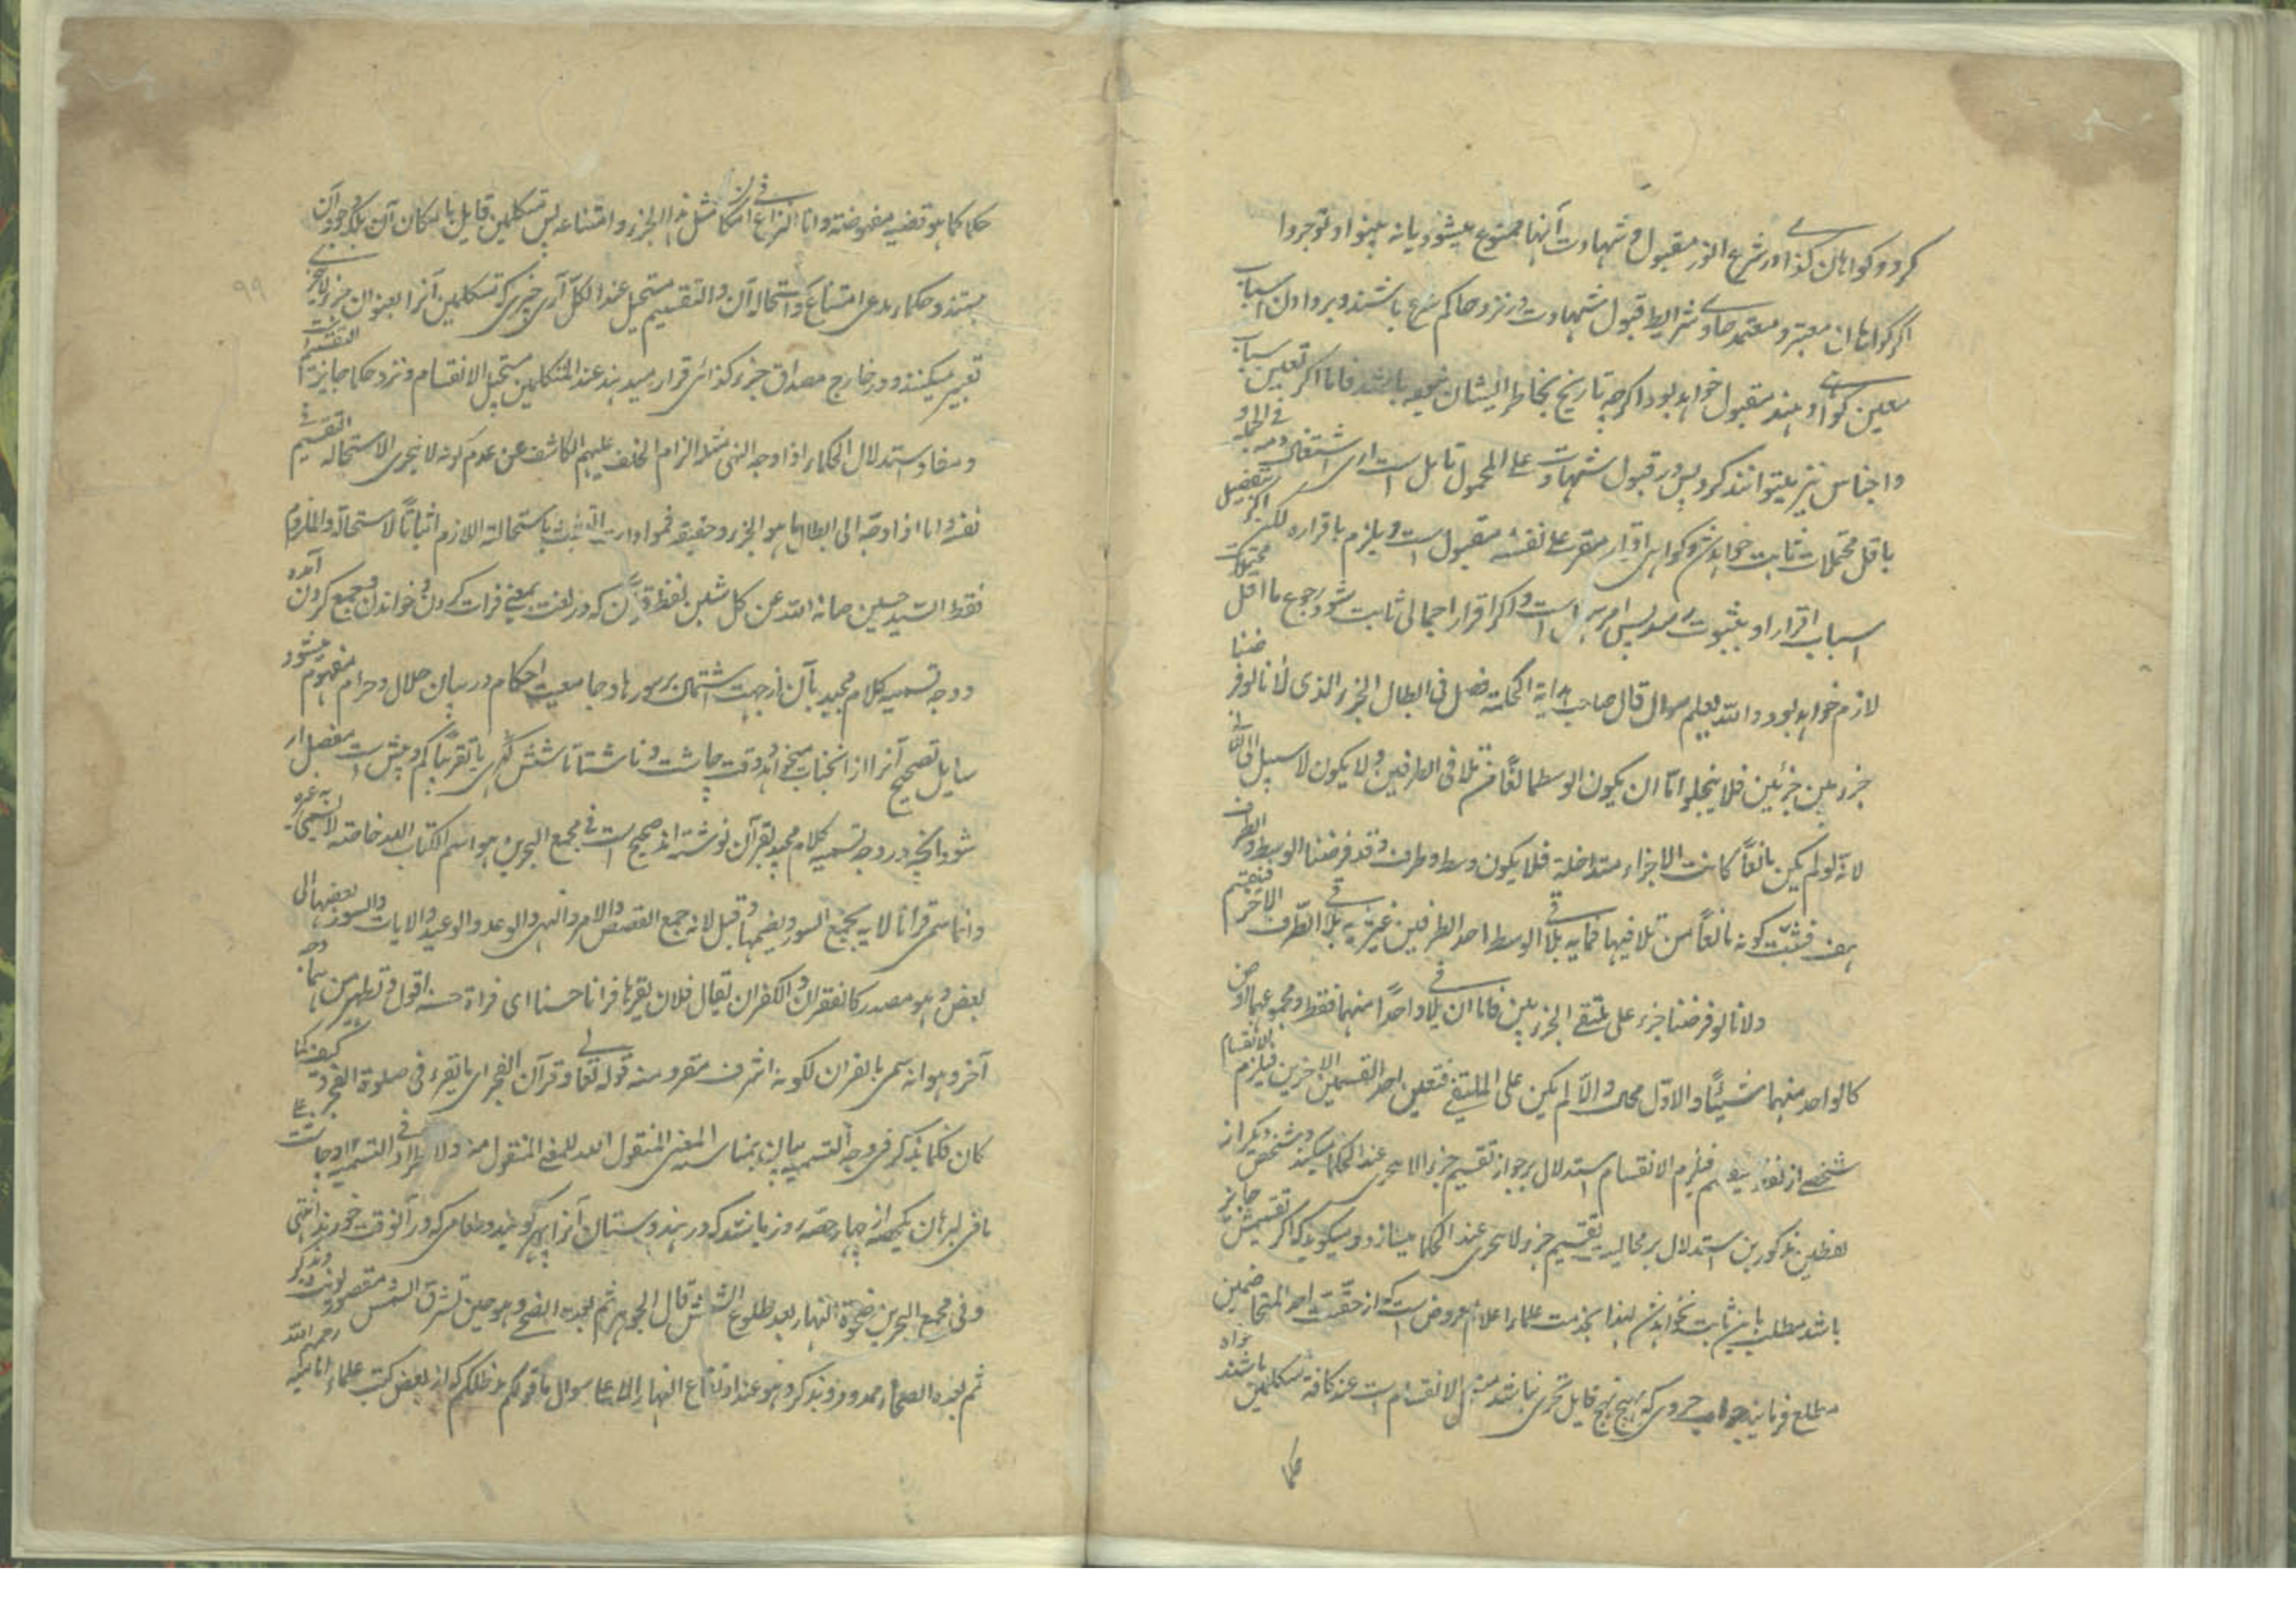 کرد و کواهان کذا در شرع انور مقبول و شهادت آنها ممنوع میشود یا نه بینوا و توجروا
اگر کواهان معتبر و معتمد حاوی شرایط قبول شهادت در نزد حاکم شرع باشند و بر دادن اسباب
معین کواهی دهند مقبول خواهد بود اگرچه تاریخ بخاطر ایشان نباشد فاما اگر تعیین اسباب
و اجناس نیز نمیتوانند کرد پس در قبول شهادت علی المجهول تامل است اری اشتغال ذمه فی الجمله و
باقل محتملات ثابت خواهد شد و کواهی اقرار مقر علی نفسه مقبول است و یلزم باقراره لکن اگر بتفصیل
اسباب اقرار او بثبوت رسد پس امر سهل است و اگر اقرار اجمالی ثابت شود رجوع باقل محتملات
لازم خواهد بود و الله یعلم سوال قال صاحب هدایة الحکمة فصل فی ابطال الجزء الذی لانا لو فرضنا
جزء بین جزئین فلا یخلوا اما ان یکون الوسط مانعاً من تلاقی الطرفین او لا یکون لا سبیل الی الثانی
لانه لو لم یکن مانعاً کانت الاجزاء متداخلة فلا یکون وسط و طرف و قد فرضنا الوسط و الطرف
هف فثبت کونه مانعاً من تلاقیهما فما به یلاقی الوسط احد الطرفین غیر ما به یلاقی الطرف الاخر فینقسم
و لانا لو فرضنا جزء علی ملتقی الجزءین فاما ان یلاقی واحداً منهما فقط او مجموعهما او من
کل واحد منهما شیئاً و الاول محال و الا لم یکن علی الملتقی فتعین احد القسمین الاخرین فیلزم الانقسام
شخصی از لفظ فینقسم فیلزم الانقسام استدلال بر جواز تقسیم جزء لا یتجزی عند الحکما میکند و شخص دیگر از
لفظین مذکورین استدلال بر محالیت تقسیم جزو لا یتجزی عند الحکما میسازد و میکوید که اگر تقسیمش جایز
باشد مطلب باین ثابت نخواهد شد لهذا بخدمت علماء اعلام معروض است که از حقیت احد المتخاصمین
مطلع فرمایند جواب جزوی که بهیچ نهج قابل تجزی نباشد ممتنع الانقسام است عند کافة متکلمین باشند خواه
حکما
حکما کما هو قضیة مفروضة و انما النزاع فی امکان مثل هذا الجزء و امتناعه پس متکلمین قایل بامکان آن بلکه وجود آن
هستند و حکماء مدعی امتناع و استحاله آن و التقسیم مستحیل عند الکل آری چیزی که متکلمین آنرا بعنوان جزء لا یتجزی
تعبیر میکنند و در خارج مصداق جزء کذائی قرار میدهند عند المتکلمین مستحیل الانقسام و نزد حکما جایز التقسیم است
و مفاد استدلال الحکماء اذا وجه الیهم مثلا الزام الخلف علیهم الکاشف عن عدم کونه لا یتجزی لا استحاله التقسیم فی
نفسه و اما اذا وجه الی ابطال ما هو الجزء حقیقة فموداه التشبث باستحالة اللازم اثباتاً لاستحالة الملزوم
فقط السید حسین صانه الله عن کل شین لفظ قرآن که در لغت بمعنی قرات کردن و خواندن و جمع کردن آمده
و وجه تسمیه کلام مجید بآن از جهت اشتمال بر سورها و جامعیت احکام در بیان حلال و حرام مفهوم میشود
سایل تصحیح آنرا از انجناب میخواهد و وقت چاشت و ناشتا تا شش کهری یا تقریباً کم و بیش است مفصل ار
شود انچه در وجه تسمیه کلام مجید بقرآن نوشته اند صحیح است فی مجمع البحرین هو اسم لکتاب الله خاصة لا یسمی به غیره
و انما سمی قرآنا لانه یجمع السور و یضمها و قیل لانه جمع القصص و الامر و النهی و الوعد و الوعید و الایات و السور بعضها الی
بعض و هو مصدر کالغفران و الکفران یقال فلان یقرء قرآنا حسنا ای قراة حسنة اقول و یظهر من
آخر و هو انه سمی بالقران لکونه اشرف مقرو و منه قوله تعالی و قرآن الفجر ای ما یقرء فی صلوة الفجر و کیف
کان فکما یذکر فی وجه التسمیة بیان مناسبة المعنی المنقول الیه للمعنی المنقول منه و لا اطراد فی التسمیة و چاشت
باقی لبرهان یکحصه از چهار حصه روز باشد که در هندوستان آنرا پهر کویند و طعامی که در آنوقت خورند انتهی
و فی مجمع البحرین ضحوة النهار بعد طلوع الشمس قال الجوهری ثم بعده الضحی و هو حین تشرق الشمس مقصورة یونث و یذکر
ثم بعده الضحاء ممدود و یذکر و هو عند ارتفاع النهار الاعلی سوال ما قولکم مد ظلکم که از بعض کتب علماء امامیه رحمهم الله
۹۹